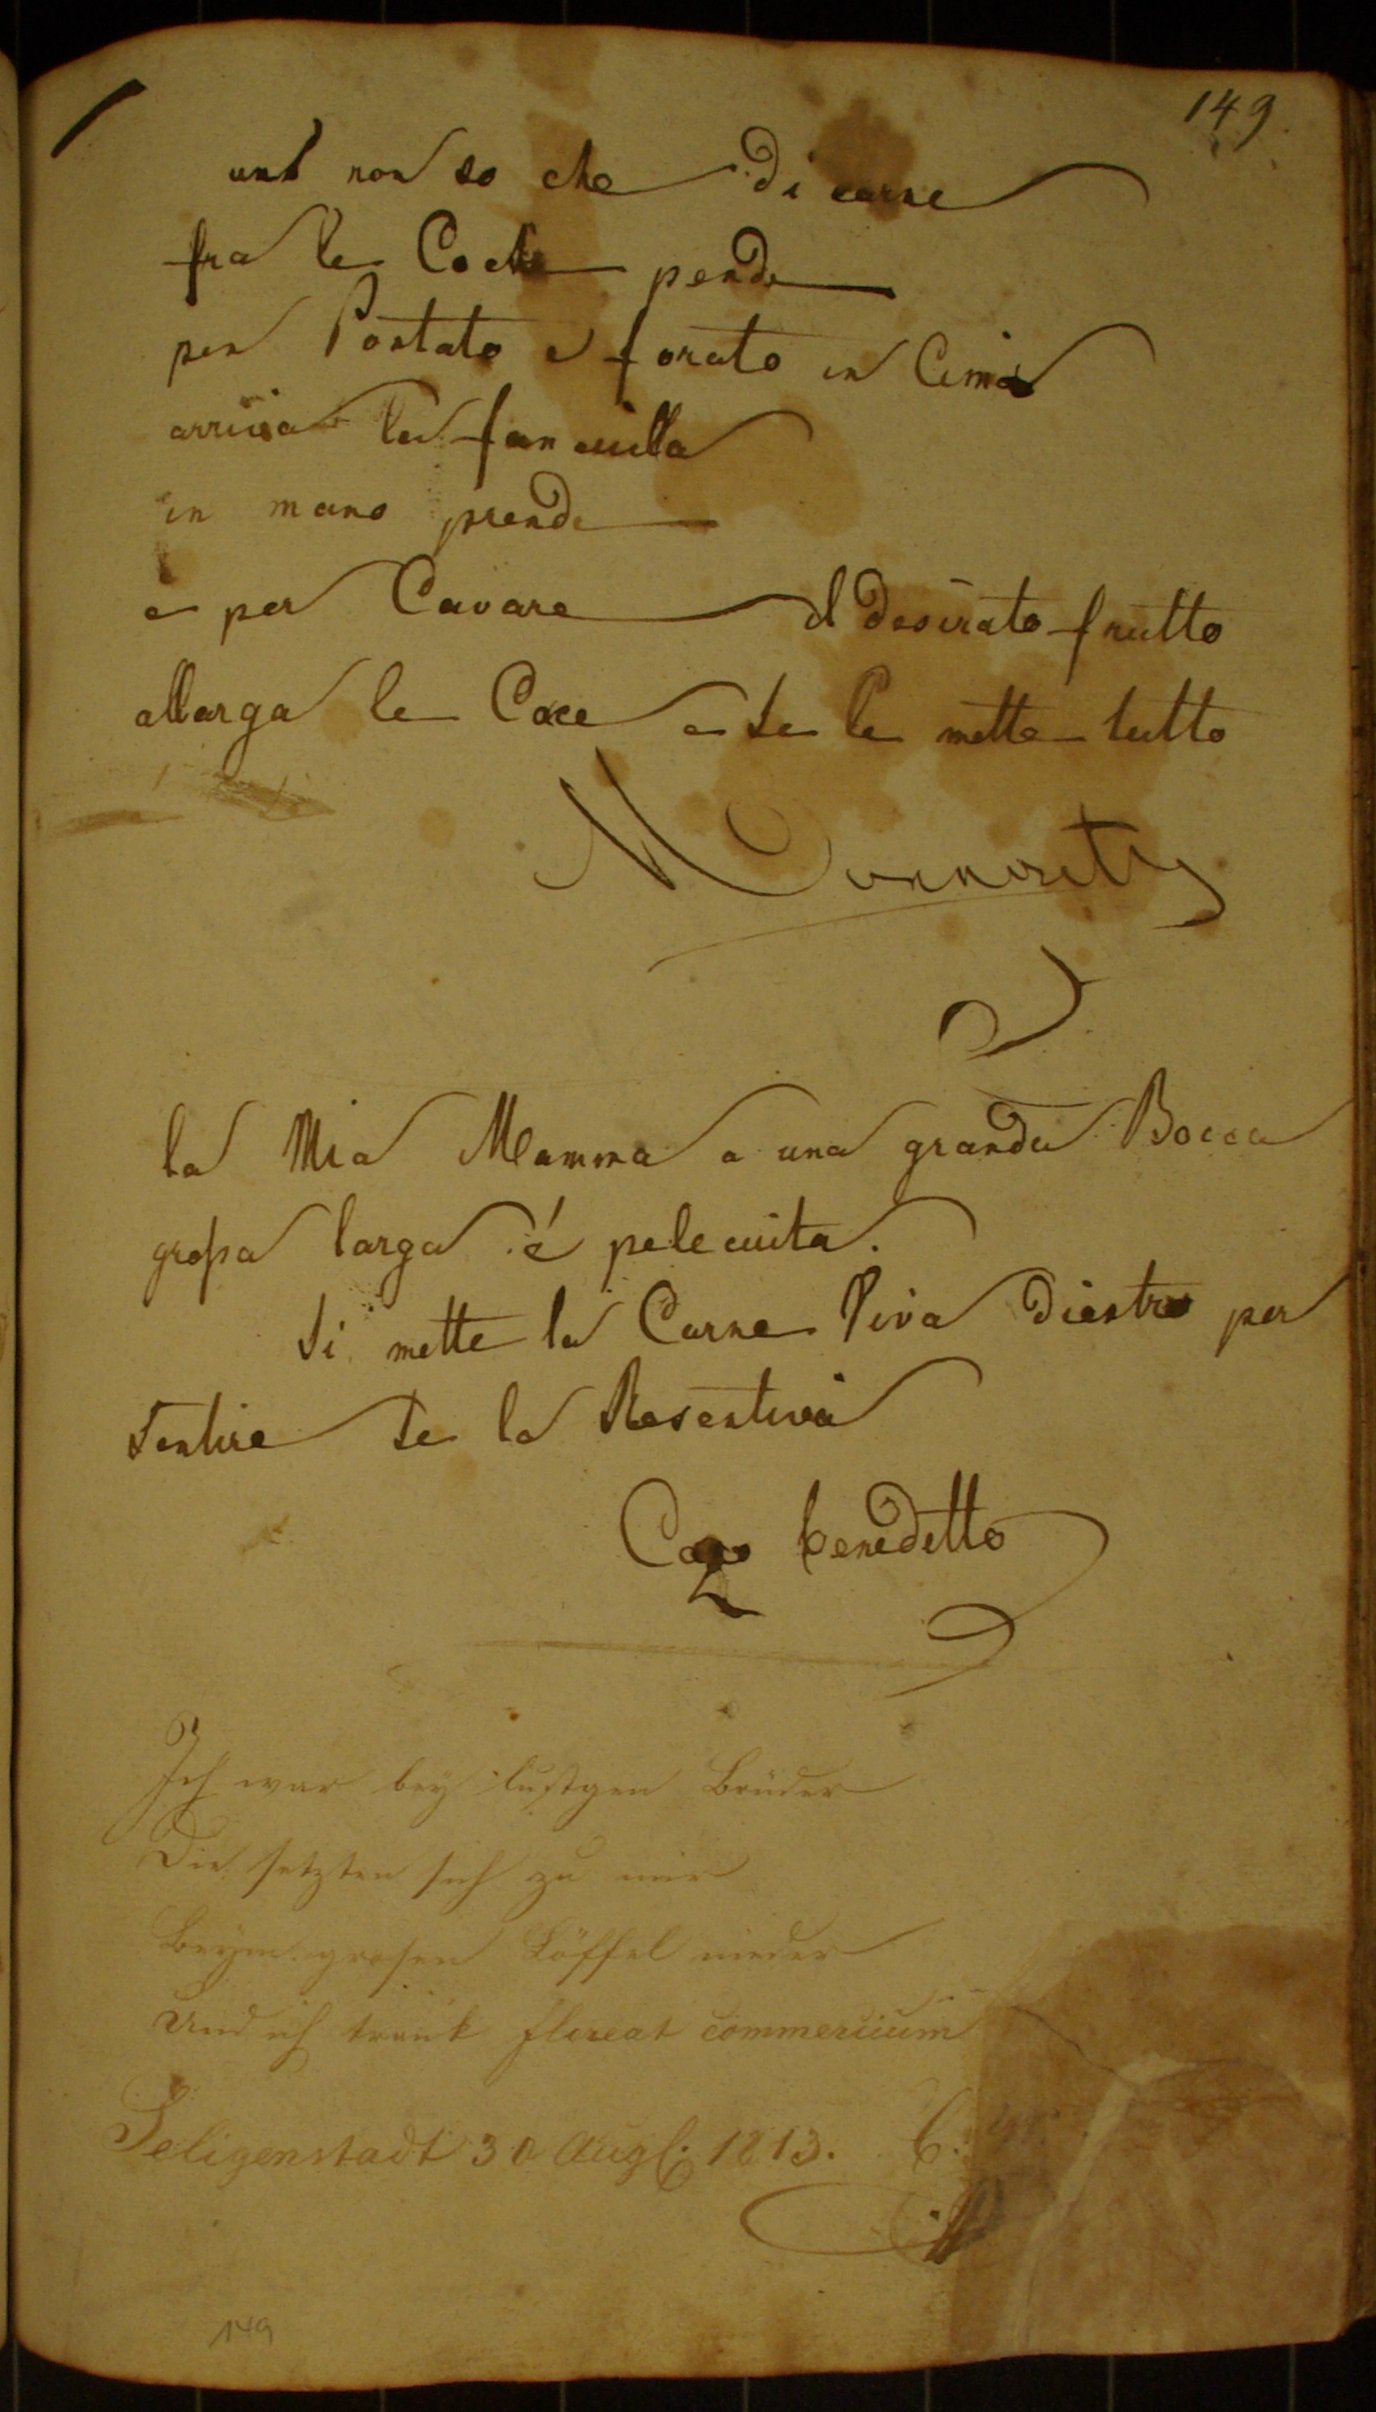 149
un non so che di carne
fra le Coche pende
per Portato e forato in Cima
arriva la fanciulla
in mano prende
e per Cavare il desirato frutto
allarga le Coce e se le mette tutto
la Mia Mamma a una granda Bocca
grossa larga é peleciuta.
Si mette la Carne Viva dientro per
Sentire se la Resentiva
Capo benedetto
Ich war bey lustgen Brüder
Die setzten sich zu mir
Beym grosen Löffel nieder
Und ich trank floreat commercium
Seligenstadt 30 Augs. 1813.
149